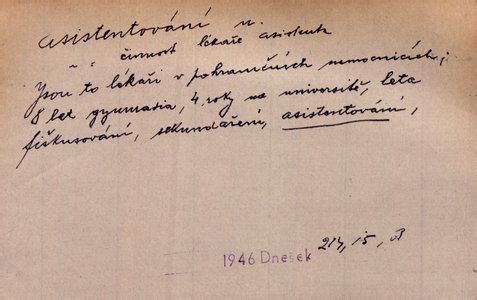 asistentování n.
" " činnost lékaře asistenta
Jsou to lékaři v pohraničních nemocnicích;
8 let gymnasia, 4 roky na universitě, leta
fiškusování, sekundaření, asistentování,
1946 Dnešek 214, 15,